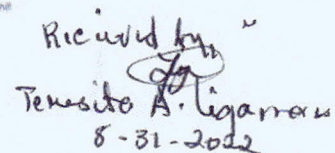 Recieved by,
Teresita A. Ligamon
8-31-2022